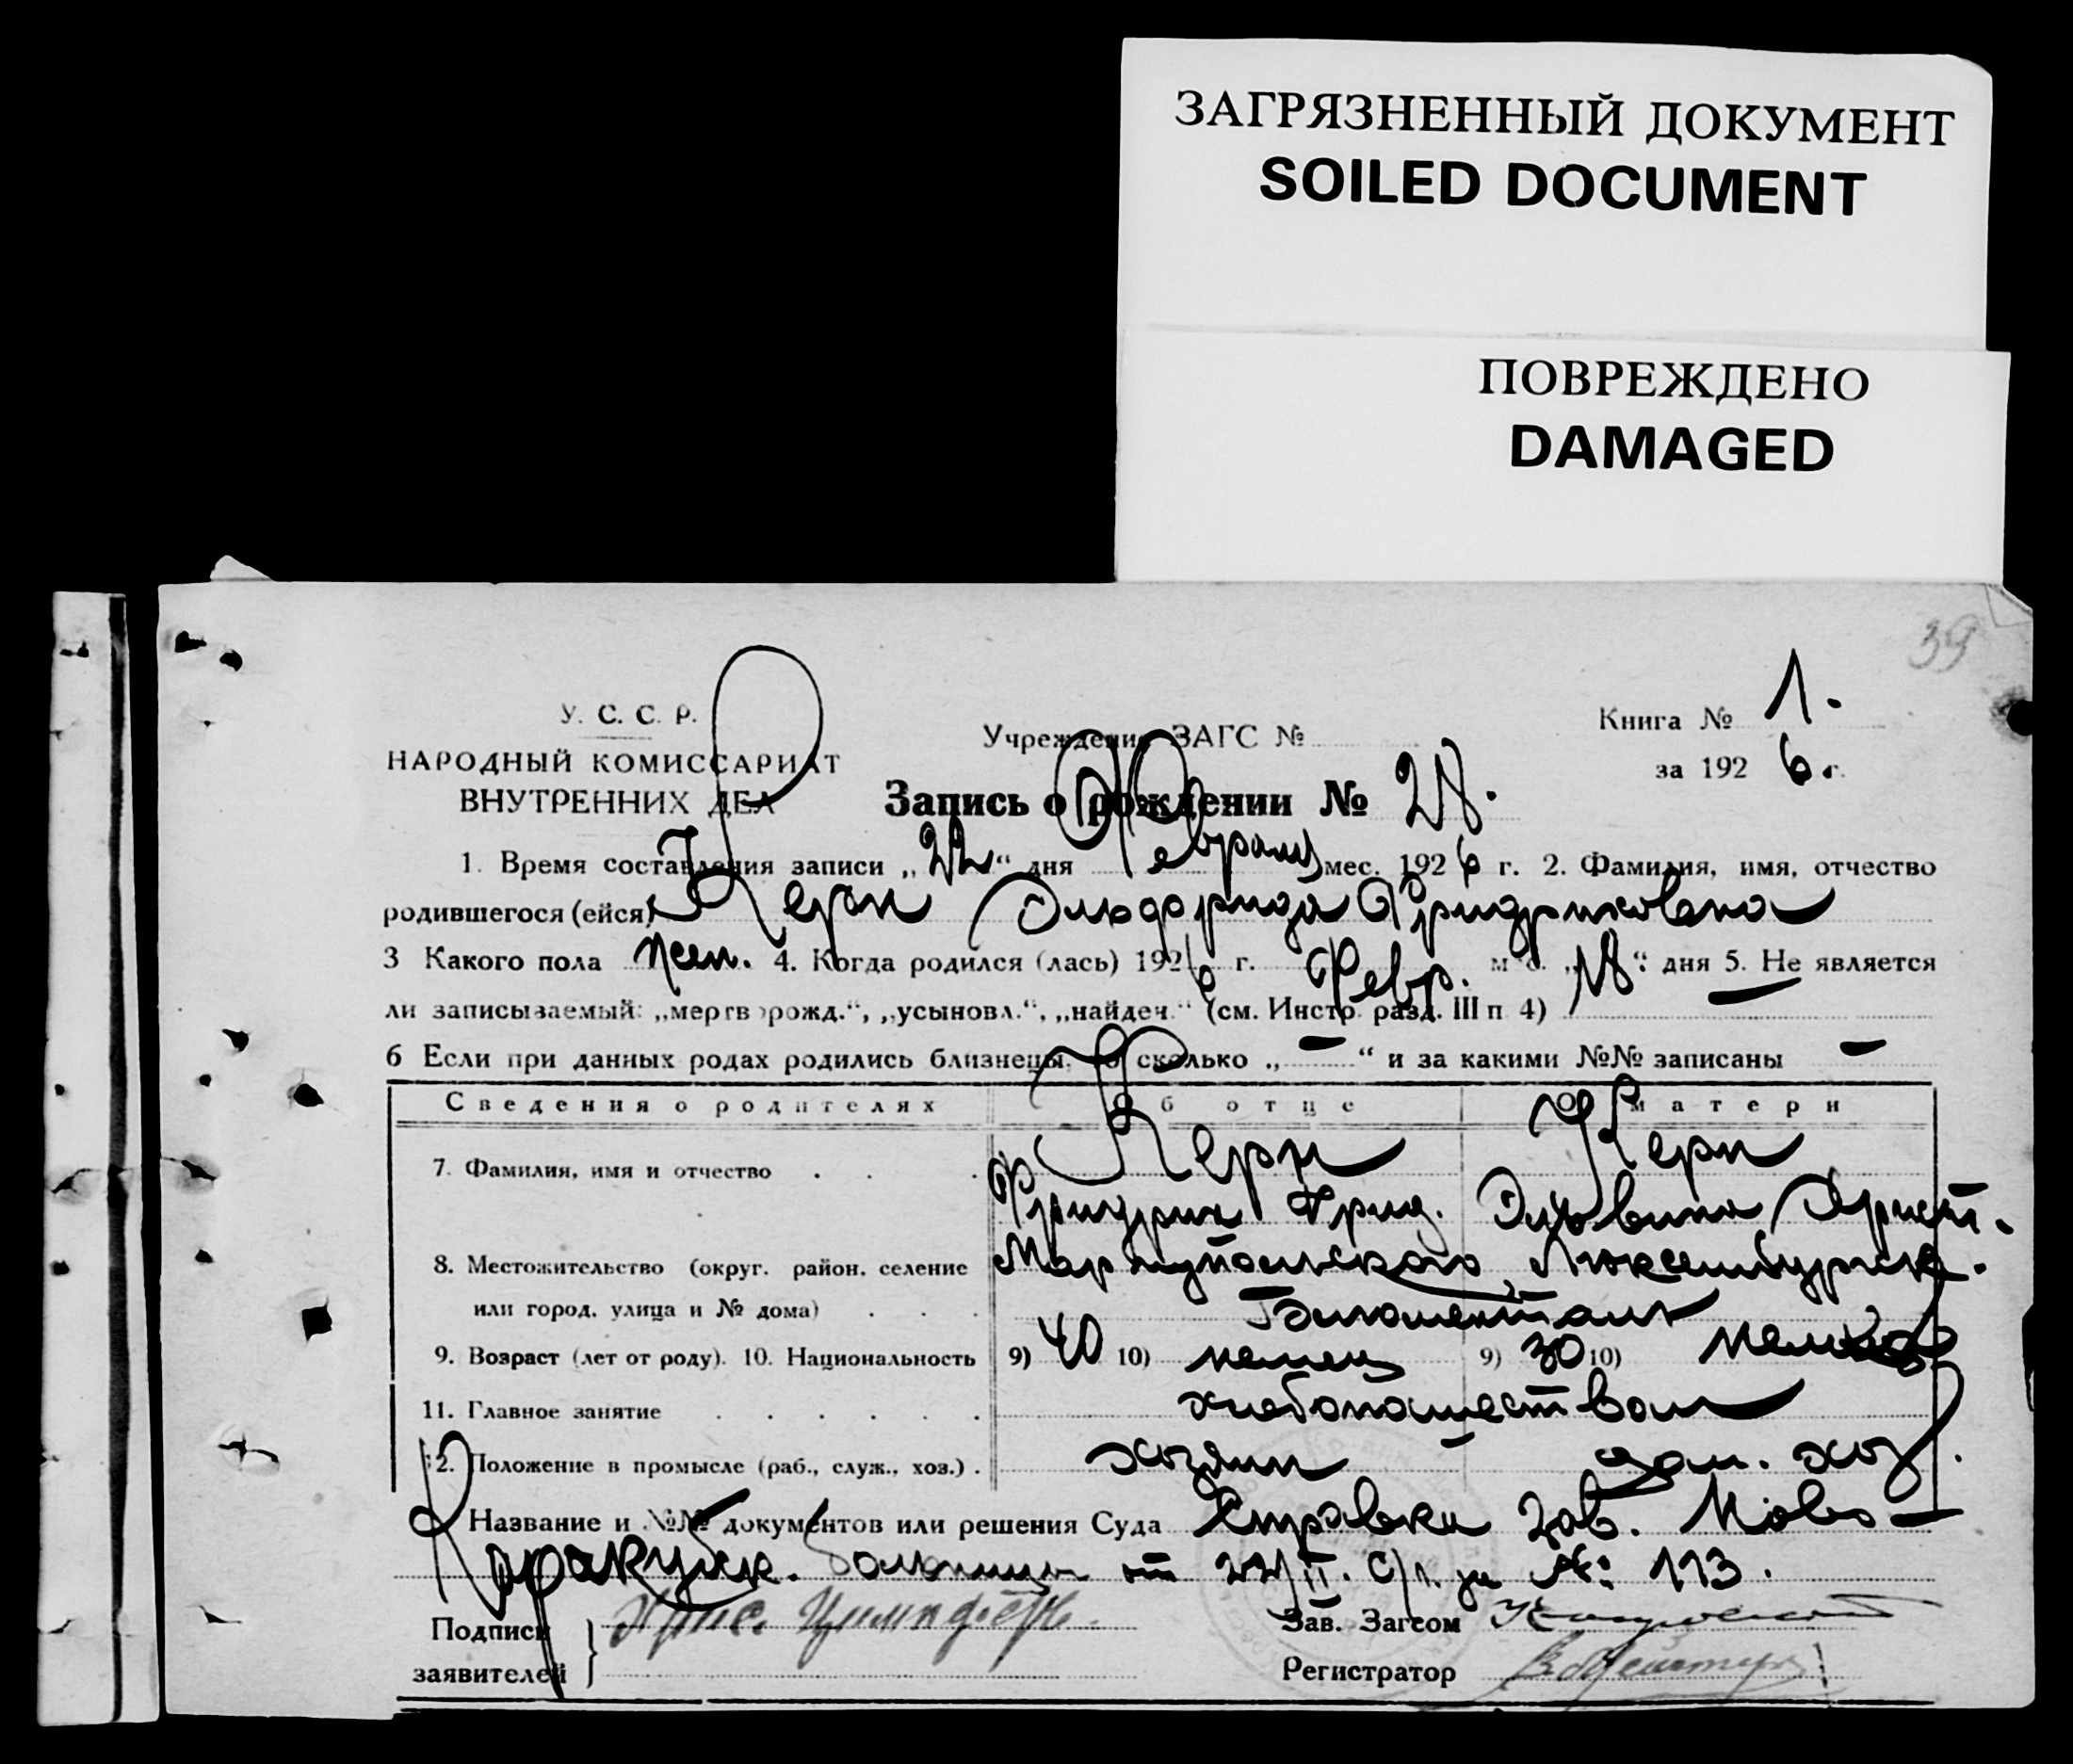 ЗАГРЯЗНЕННЫЙ ДОКУМЕНТ
SOILED DOCUMENT
ПОВРЕЖДЕНО
DAMAGED
39
У. С. С. Р.
НАРОДНЫЙ КОМИССАРИАТ
ВНУТРЕННИХ ДЕЛ
Учреждение ЗАГС №
Книга № 1.
за 1926 г.
Запись о рождении № 28.
1. Время составления записи „22“ дня Февраля мес. 1926 г. 2. Фамилия, имя, отчество
родившегося (ейся) Керн Эльфрида Фридриховна
3 Какого пола жен. 4. Когда родился (лась) 1926 г. Февр. м с. „18“ дня 5. Не является
ли записываемый: „мертворожд.“, „усыновл.“, „найден.“ (см. Инстр. разд. III п 4) —
6 Если при данных родах родились близнецы, то сколько „—“ и за какими №№ записаны —
Сведения о родителях Об отце О матери
7. Фамилия, имя и отчество Керн Керн
Фридрих Фрид. Христ.
8. Местожительство (округ. район. селение Мариупольского, Люксембургск.
или город. улица и № дома)
9. Возраст (лет от роду). 10. Национальность 9) 40 10) немец 9) 30 10)
11. Главное занятие хлебопашеством
12. Положение в промысле (раб., служ., хоз.) . хозяин дом. хоз.
Название и №№ документов или решения Суда Справка зав. Ново-
Каракубск. больницы от 22/II. с/г. за №: 113.
Подписи
заявителей
Зав. Загсом
Регистратор